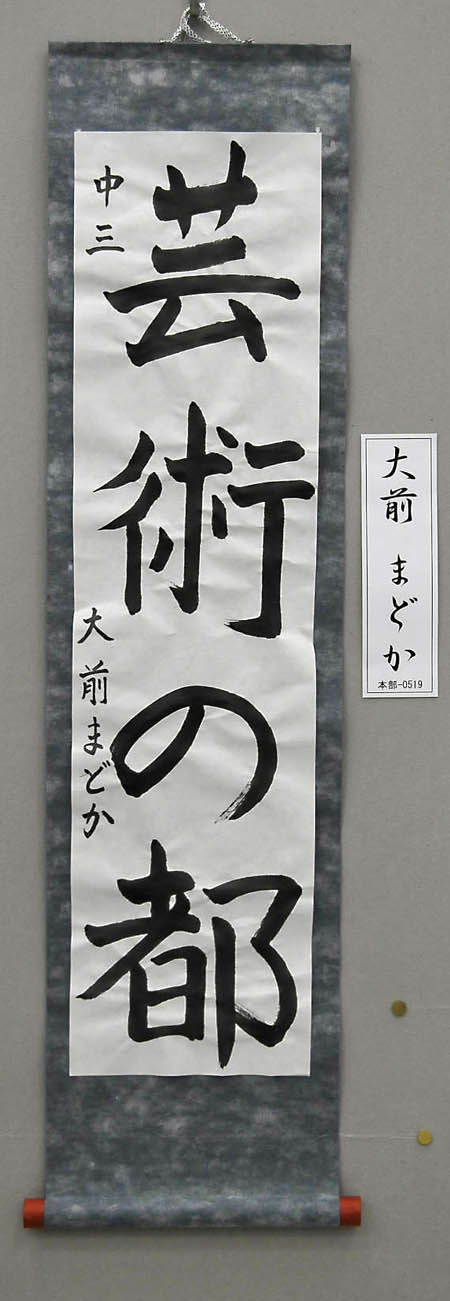 芸術の都
中三
大前まどか
大前 まどか
本部-0519